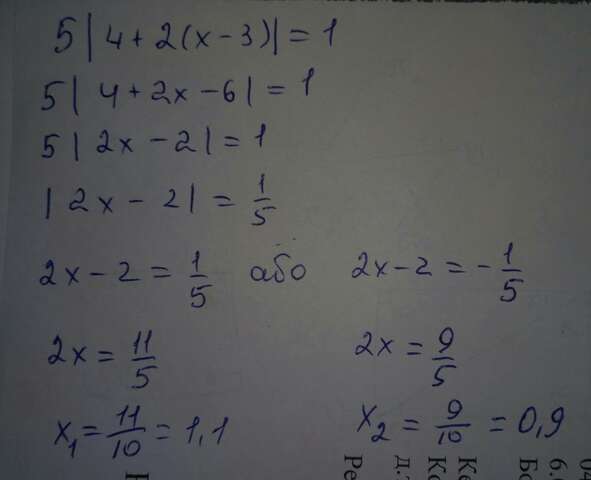 5|4+2(x-3)|=1
5|4+2x-6|=1
5|2x-2|=1
|2x-2|=1/5
2x-2=1/5 або 2x-2=-1/5
2x=11/5 2x=9/5
x₁=11/10=1,1 x₂=9/10=0,9